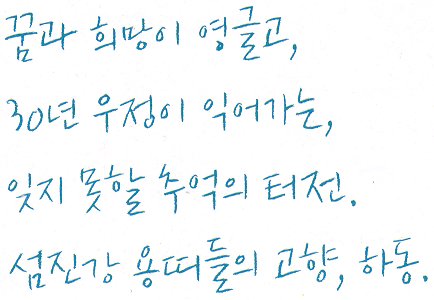 꿈과 희망이 영글고,
30년 우정이 익어가는,
잊지 못할 추억의 터전.
섬진강 용띠들의 고향, 하동.